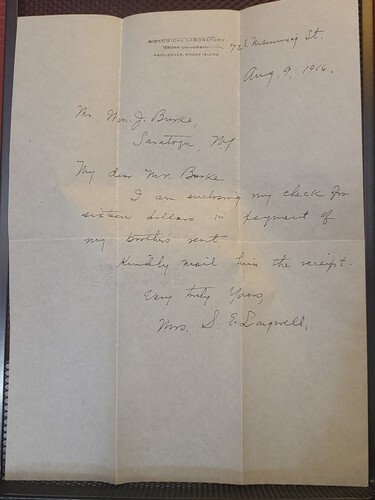 BIOLOGICAL LABORATORY
BROWN UNIVERSITY
PROVIDENCE, RHODE ISLAND
72 S. Manning St.
Aug. 9, 1916.
Mr. Wm. J. Burke,
Saratoga, N.Y.
My dear Mr. Burke
I am enclosing my check for
sixteen dollars in payment of
my brother's rent.
Kindly mail him the receipt.
Very truly yours,
Mrs. S E